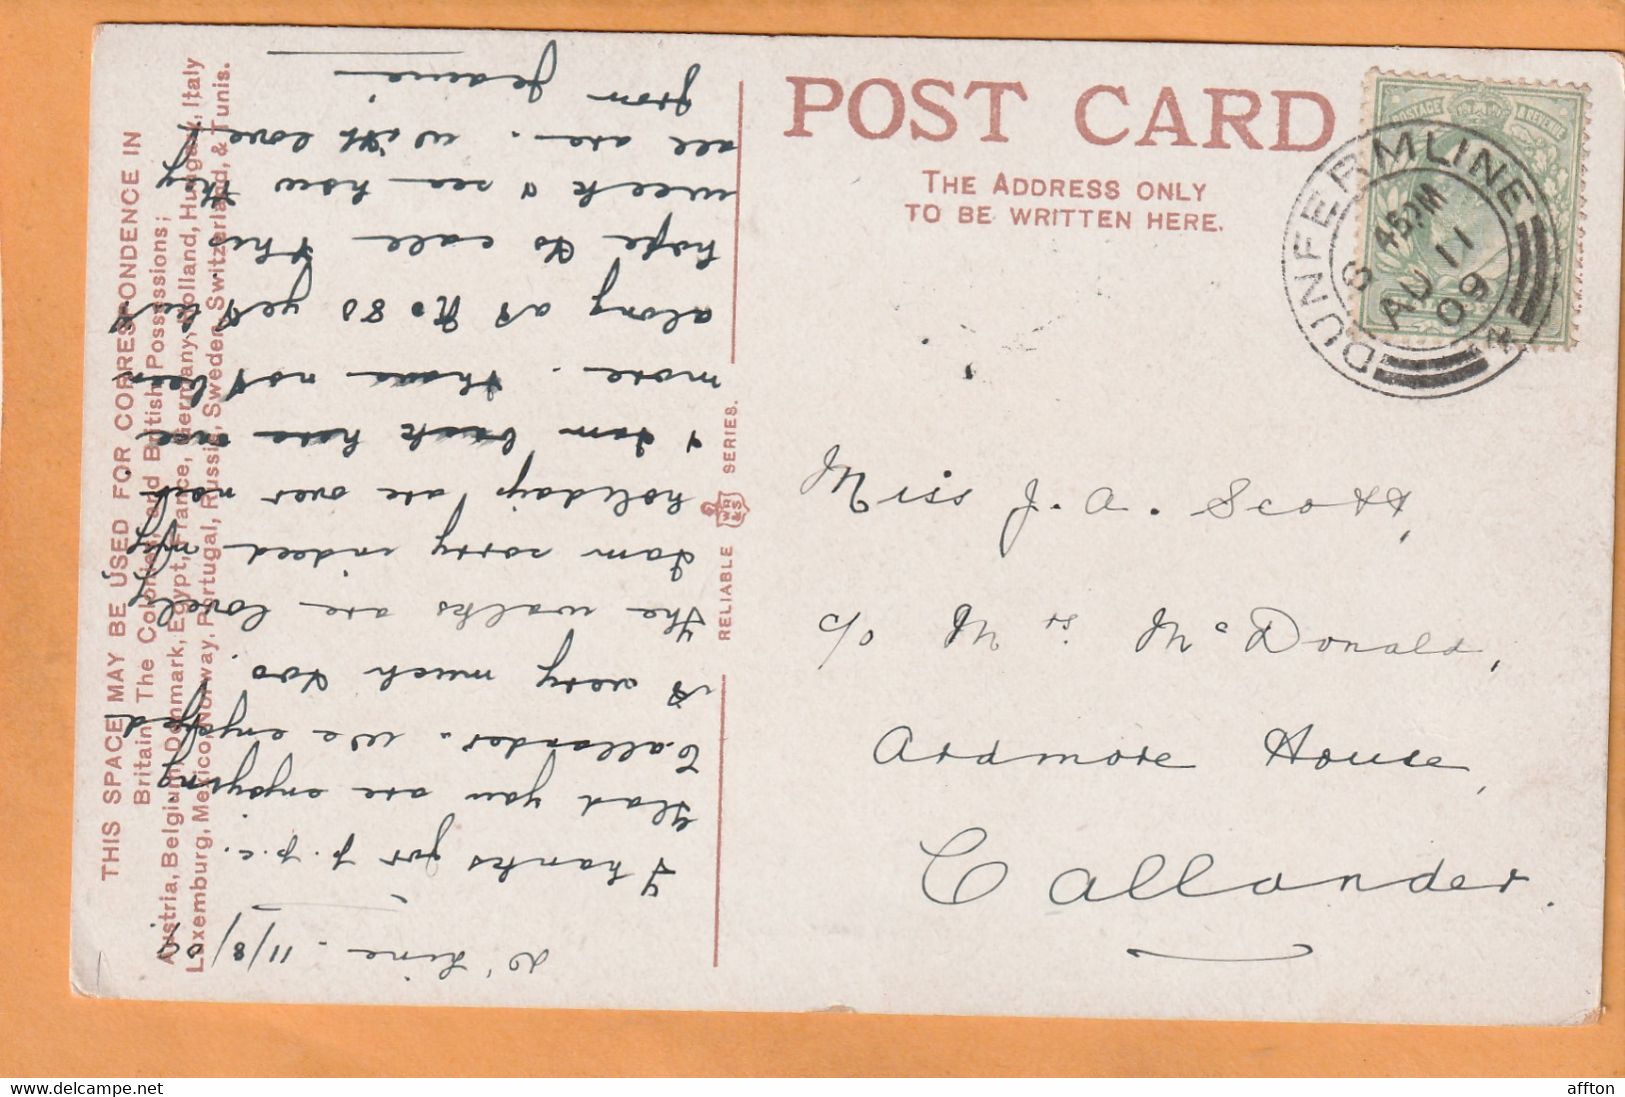 POST CARD
THE ADDRESS ONLY
TO BE WRITTEN HERE.
POSTAGE & REVENUE
DUNFERMLINE
6 45PM
AU 11
09
4
Miss J. A. Scott,
c/o Mrs McDonald,
Ardmore House,
Callander.
RELIABLE WR&S SERIES.
THIS SPACE MAY BE USED FOR CORRESPONDENCE IN
Britain The Colonies, and British Possessions;
Austria, Belgium, Denmark, Egypt, France, Germany, Holland, Hungary, Italy
Luxemburg, Mexico, Norway, Portugal, Russia, Sweden, Switzerland, & Tunis.
D'Line. 11/8/09
Thanks for p.p.c.
Glad you are enjoying
Callander. We enjoyed
it very much too.
The walks are lovely
I am sorry indeed my
holidays are over
& I am back here once
more. I have not been
along at No 80 yet but
hope to call this
week & see how they
all are. With love
from Jeanie
affton